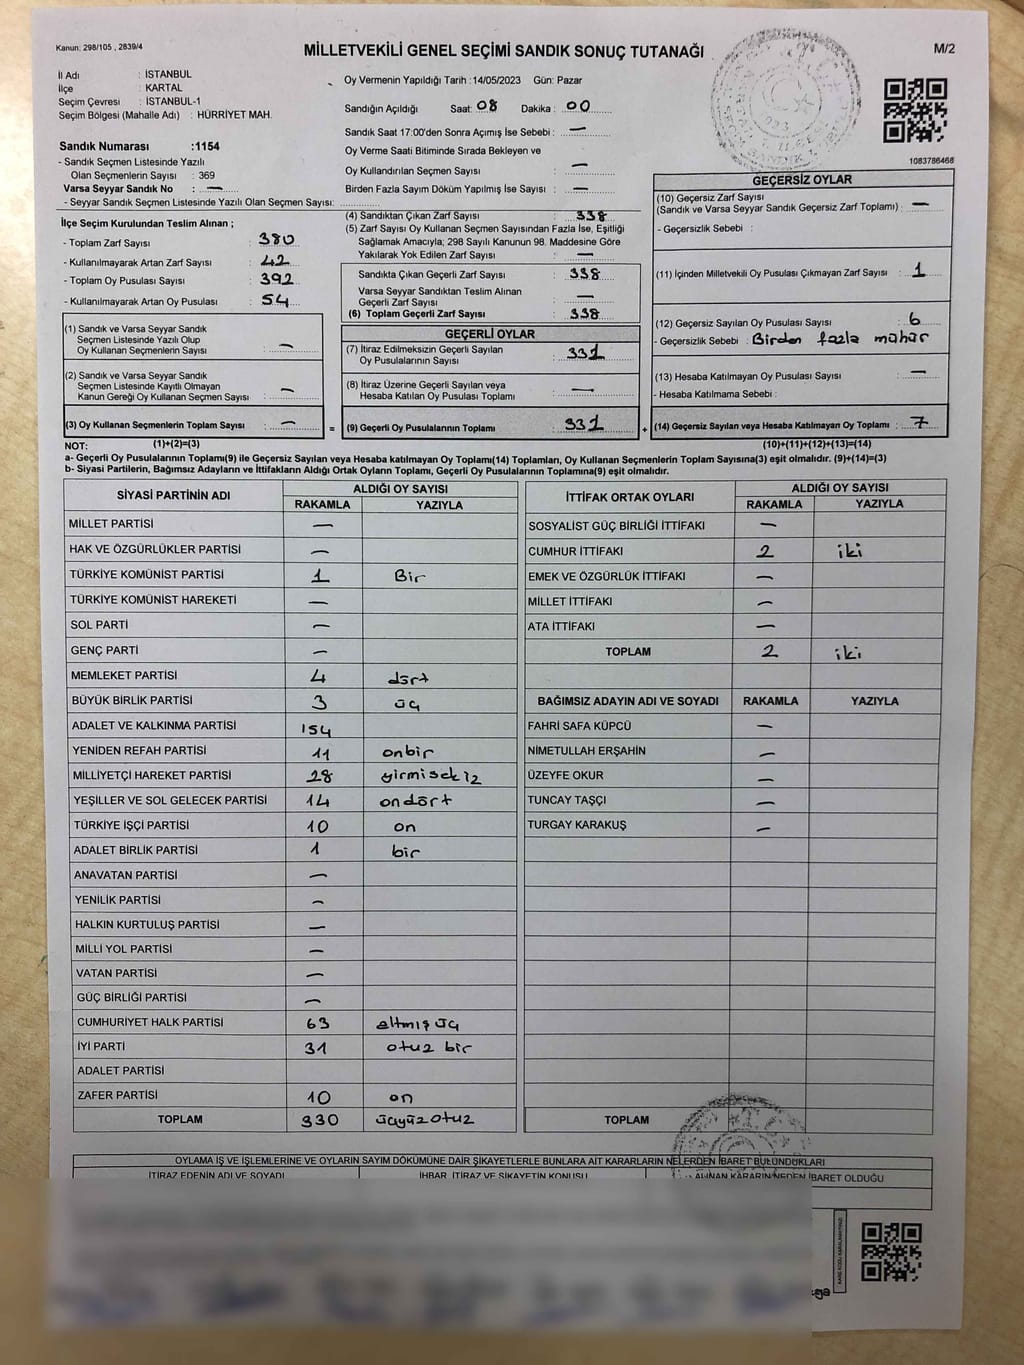 Kanun: 298/105 , 2839/4
MİLLETVEKİLİ GENEL SEÇİMİ SANDIK SONUÇ TUTANAĞI
M/2
İl Adı : İSTANBUL
İlçe : KARTAL
Seçim Çevresi : İSTANBUL-1
Seçim Bölgesi (Mahalle Adı) : HÜRRİYET MAH.
Sandık Numarası :1154
- Sandık Seçmen Listesinde Yazılı
Olan Seçmenlerin Sayısı : 369
Varsa Seyyar Sandık No : —
- Seyyar Sandık Seçmen Listesinde Yazılı Olan Seçmen Sayısı:
Oy Vermenin Yapıldığı Tarih :14/05/2023 Gün: Pazar
Sandığın Açıldığı Saat: 08 Dakika : 00
Sandık Saat 17:00'den Sonra Açımış İse Sebebi : —
Oy Verme Saati Bitiminde Sırada Bekleyen ve
Oy Kullandırılan Seçmen Sayısı : —
Birden Fazla Sayım Döküm Yapılmış İse Sayısı : —
1083786466
İlçe Seçim Kurulundan Teslim Alınan ;
- Toplam Zarf Sayısı : 380
- Kullanılmayarak Artan Zarf Sayısı : 42
- Toplam Oy Pusulası Sayısı : 392
- Kullanılmayarak Artan Oy Pusulası : 54
(1) Sandık ve Varsa Seyyar Sandık
Seçmen Listesinde Yazılı Olup
Oy Kullanan Seçmenlerin Sayısı : —
(2) Sandık ve Varsa Seyyar Sandık
Seçmen Listesinde Kayıtlı Olmayan
Kanun Gereği Oy Kullanan Seçmen Sayısı : —
(3) Oy Kullanan Seçmenlerin Toplam Sayısı : —
(4) Sandıktan Çıkan Zarf Sayısı : 338
(5) Zarf Sayısı Oy Kullanan Seçmen Sayısından Fazla İse, Eşitliği
Sağlamak Amacıyla; 298 Sayılı Kanunun 98. Maddesine Göre
Yakılarak Yok Edilen Zarf Sayısı : —
Sandıkta Çıkan Geçerli Zarf Sayısı : 338
Varsa Seyyar Sandıktan Teslim Alınan
Geçerli Zarf Sayısı : —
(6) Toplam Geçerli Zarf Sayısı : 338
GEÇERLİ OYLAR
(7) İtiraz Edilmeksizin Geçerli Sayılan
Oy Pusulalarının Sayısı : 331
(8) İtiraz Üzerine Geçerli Sayılan veya
Hesaba Katılan Oy Pusulası Toplamı : —
= (9) Geçerli Oy Pusulalarının Toplamı : 331 +
GEÇERSİZ OYLAR
(10) Geçersiz Zarf Sayısı
(Sandık ve Varsa Seyyar Sandık Geçersiz Zarf Toplamı) : —
- Geçersizlik Sebebi :
(11) İçinden Milletvekili Oy Pusulası Çıkmayan Zarf Sayısı : 1
(12) Geçersiz Sayılan Oy Pusulası Sayısı : 6
- Geçersizlik Sebebi : Birden fazla mühür
(13) Hesaba Katılmayan Oy Pusulası Sayısı : —
- Hesaba Katılmama Sebebi :
(14) Geçersiz Sayılan veya Hesaba Katılmayan Oy Toplamı : 7
NOT: (1)+(2)=(3) (10)+(11)+(12)+(13)=(14)
a- Geçerli Oy Pusulalarının Toplamı(9) ile Geçersiz Sayılan veya Hesaba katılmayan Oy Toplamı(14) Toplamları, Oy Kullanan Seçmenlerin Toplam Sayısına(3) eşit olmalıdır. (9)+(14)=(3)
b- Siyasi Partilerin, Bağımsız Adayların ve İttifakların Aldığı Ortak Oyların Toplamı, Geçerli Oy Pusulalarının Toplamına(9) eşit olmalıdır.
SİYASİ PARTİNİN ADI ALDIĞI OY SAYISI
RAKAMLA YAZIYLA
MİLLET PARTİSİ —
HAK VE ÖZGÜRLÜKLER PARTİSİ —
TÜRKİYE KOMÜNİST PARTİSİ 1 Bir
TÜRKİYE KOMÜNİST HAREKETİ —
SOL PARTİ —
GENÇ PARTİ —
MEMLEKET PARTİSİ 4 dört
BÜYÜK BİRLİK PARTİSİ 3 üç
ADALET VE KALKINMA PARTİSİ 154
YENİDEN REFAH PARTİSİ 11 onbir
MİLLİYETÇİ HAREKET PARTİSİ 28 yirmisekiz
YEŞİLLER VE SOL GELECEK PARTİSİ 14 ondört
TÜRKİYE İŞÇİ PARTİSİ 10 on
ADALET BİRLİK PARTİSİ 1 bir
ANAVATAN PARTİSİ —
YENİLİK PARTİSİ —
HALKIN KURTULUŞ PARTİSİ —
MİLLİ YOL PARTİSİ —
VATAN PARTİSİ —
GÜÇ BİRLİĞİ PARTİSİ —
CUMHURİYET HALK PARTİSİ 63 altmış üç
İYİ PARTİ 31 otuz bir
ADALET PARTİSİ
ZAFER PARTİSİ 10 on
TOPLAM 330 üçyüzotuz
İTTİFAK ORTAK OYLARI ALDIĞI OY SAYISI
RAKAMLA YAZIYLA
SOSYALİST GÜÇ BİRLİĞİ İTTİFAKI —
CUMHUR İTTİFAKI 2 iki
EMEK VE ÖZGÜRLÜK İTTİFAKI —
MİLLET İTTİFAKI —
ATA İTTİFAKI —
TOPLAM 2 iki
BAĞIMSIZ ADAYIN ADI VE SOYADI RAKAMLA YAZIYLA
FAHRİ SAFA KÜPCÜ —
NİMETULLAH ERŞAHİN —
ÜZEYFE OKUR —
TUNCAY TAŞÇI —
TURGAY KARAKUŞ —
TOPLAM
OYLAMA İŞ VE İŞLEMLERİNE VE OYLARIN SAYIM DÖKÜMÜNE DAİR ŞİKAYETLERLE BUNLARA AİT KARARLARIN NELERDEN İBARET BULUNDUKLARI
İTİRAZ EDENİN ADI VE SOYADI İHBAR, İTİRAZ VE ŞİKAYETİN KONUSU ALINAN KARARIN NEDEN İBARET OLDUĞU